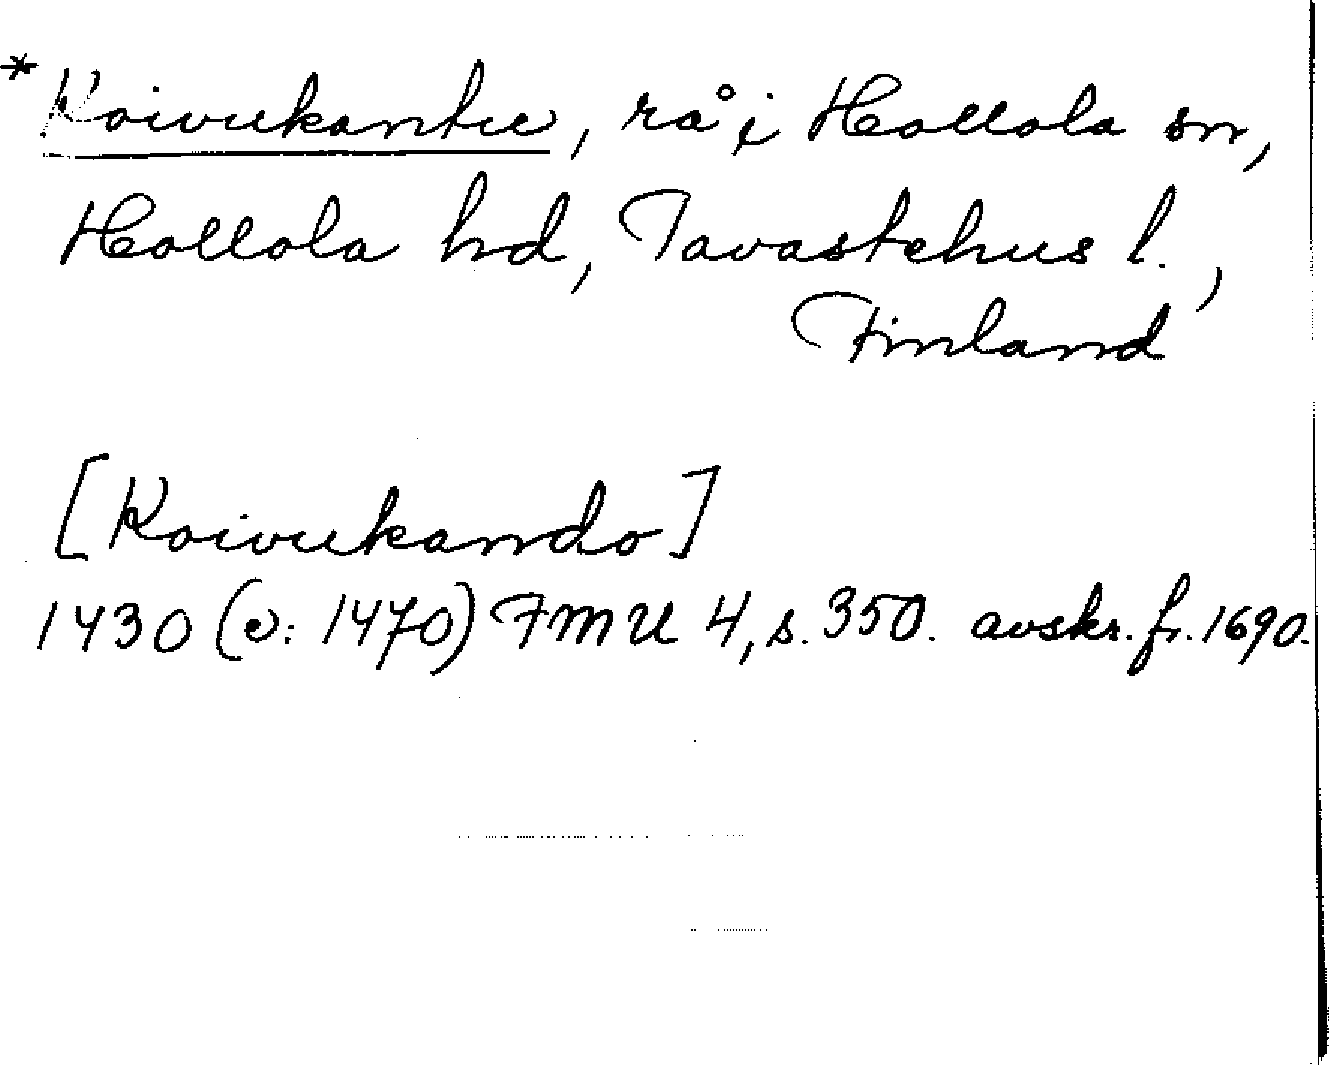 *Koivukantu, rå i Hollola sn,
Hollola hd, Tavastehus l.,
Finland
[Koivukando]
1430 (o: 1470) FMU 4, s. 350. avskr. fr. 1690.